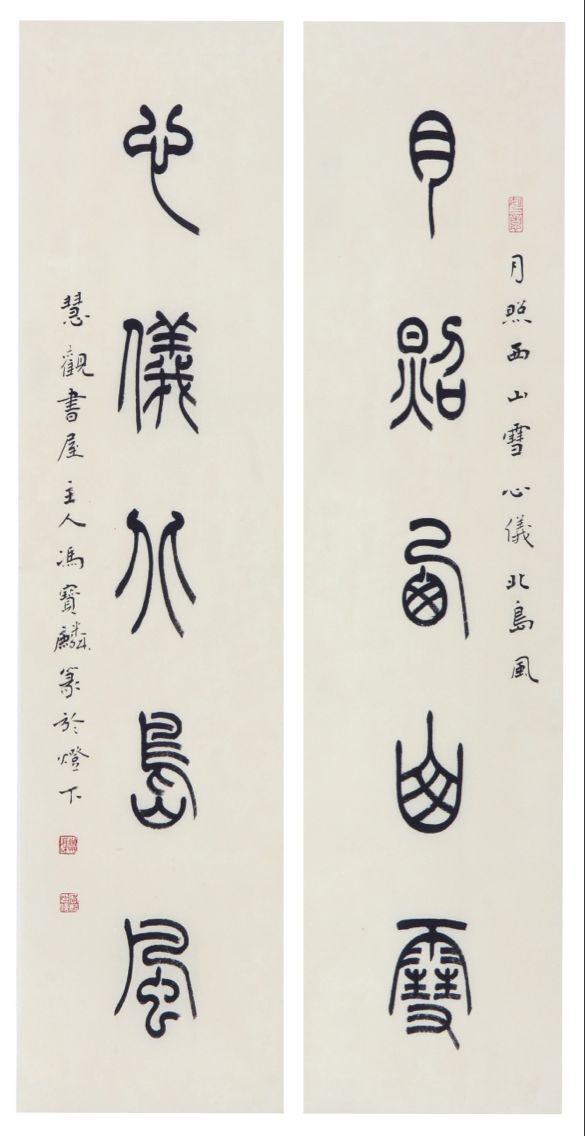 月照西山雪心儀北島風
月照西山雪
心儀北島風
慧觀書屋主人馮寶麟篆於燈下